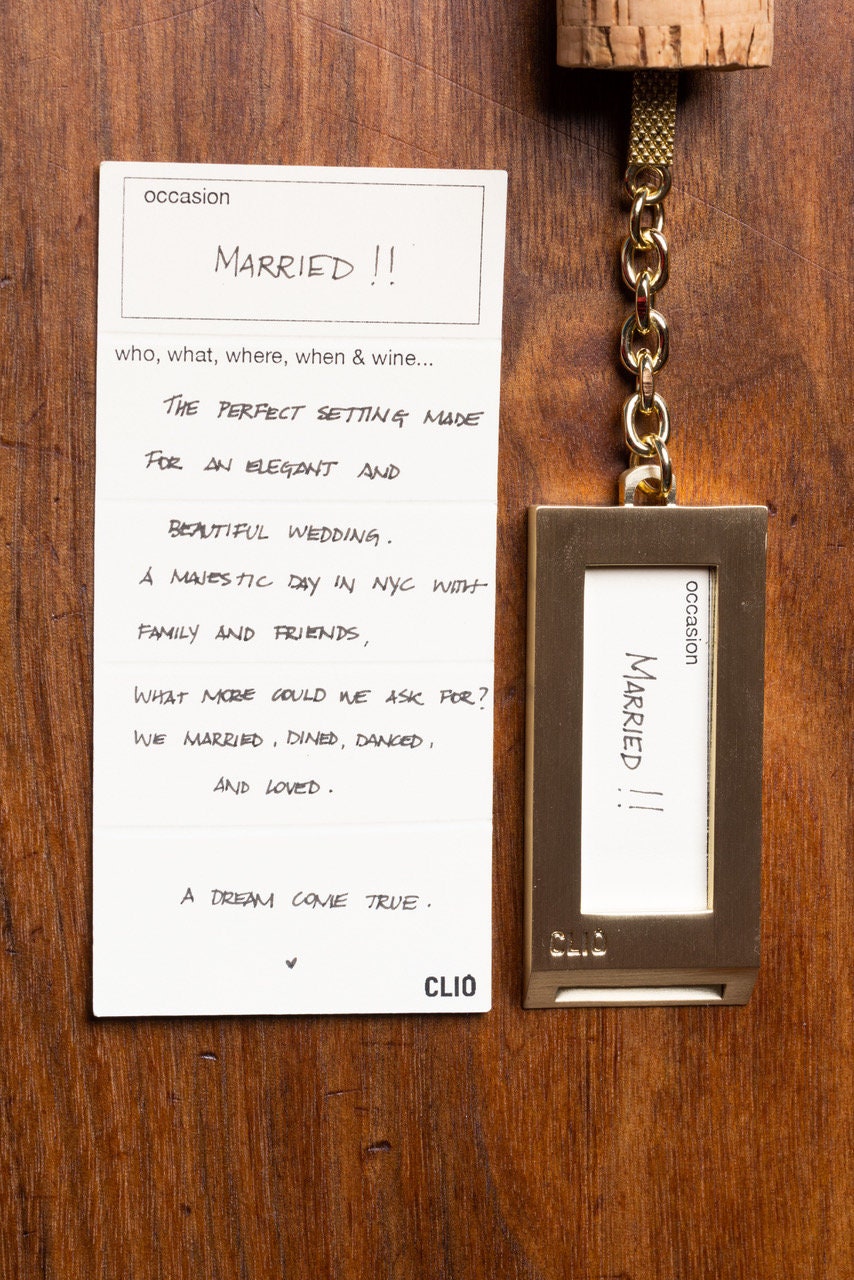 occasion
MARRIED !!
who, what, where, when & wine...
THE PERFECT SETTING MADE
FOR AN ELEGANT AND
BEAUTIFUL WEDDING.
A MAJESTIC DAY IN NYC WITH
FAMILY AND FRIENDS,
WHAT MORE COULD WE ASK FOR?
WE MARRIED, DINED, DANCED,
AND LOVED.
A DREAM COME TRUE.
♥
CLIÒ
occasion
MARRIED !!
CLIÒ